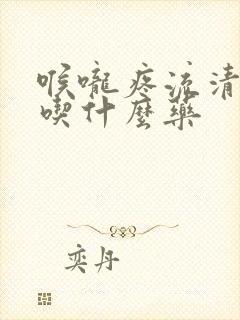 喉嚨疼流清
喫什麼藥
奕丹